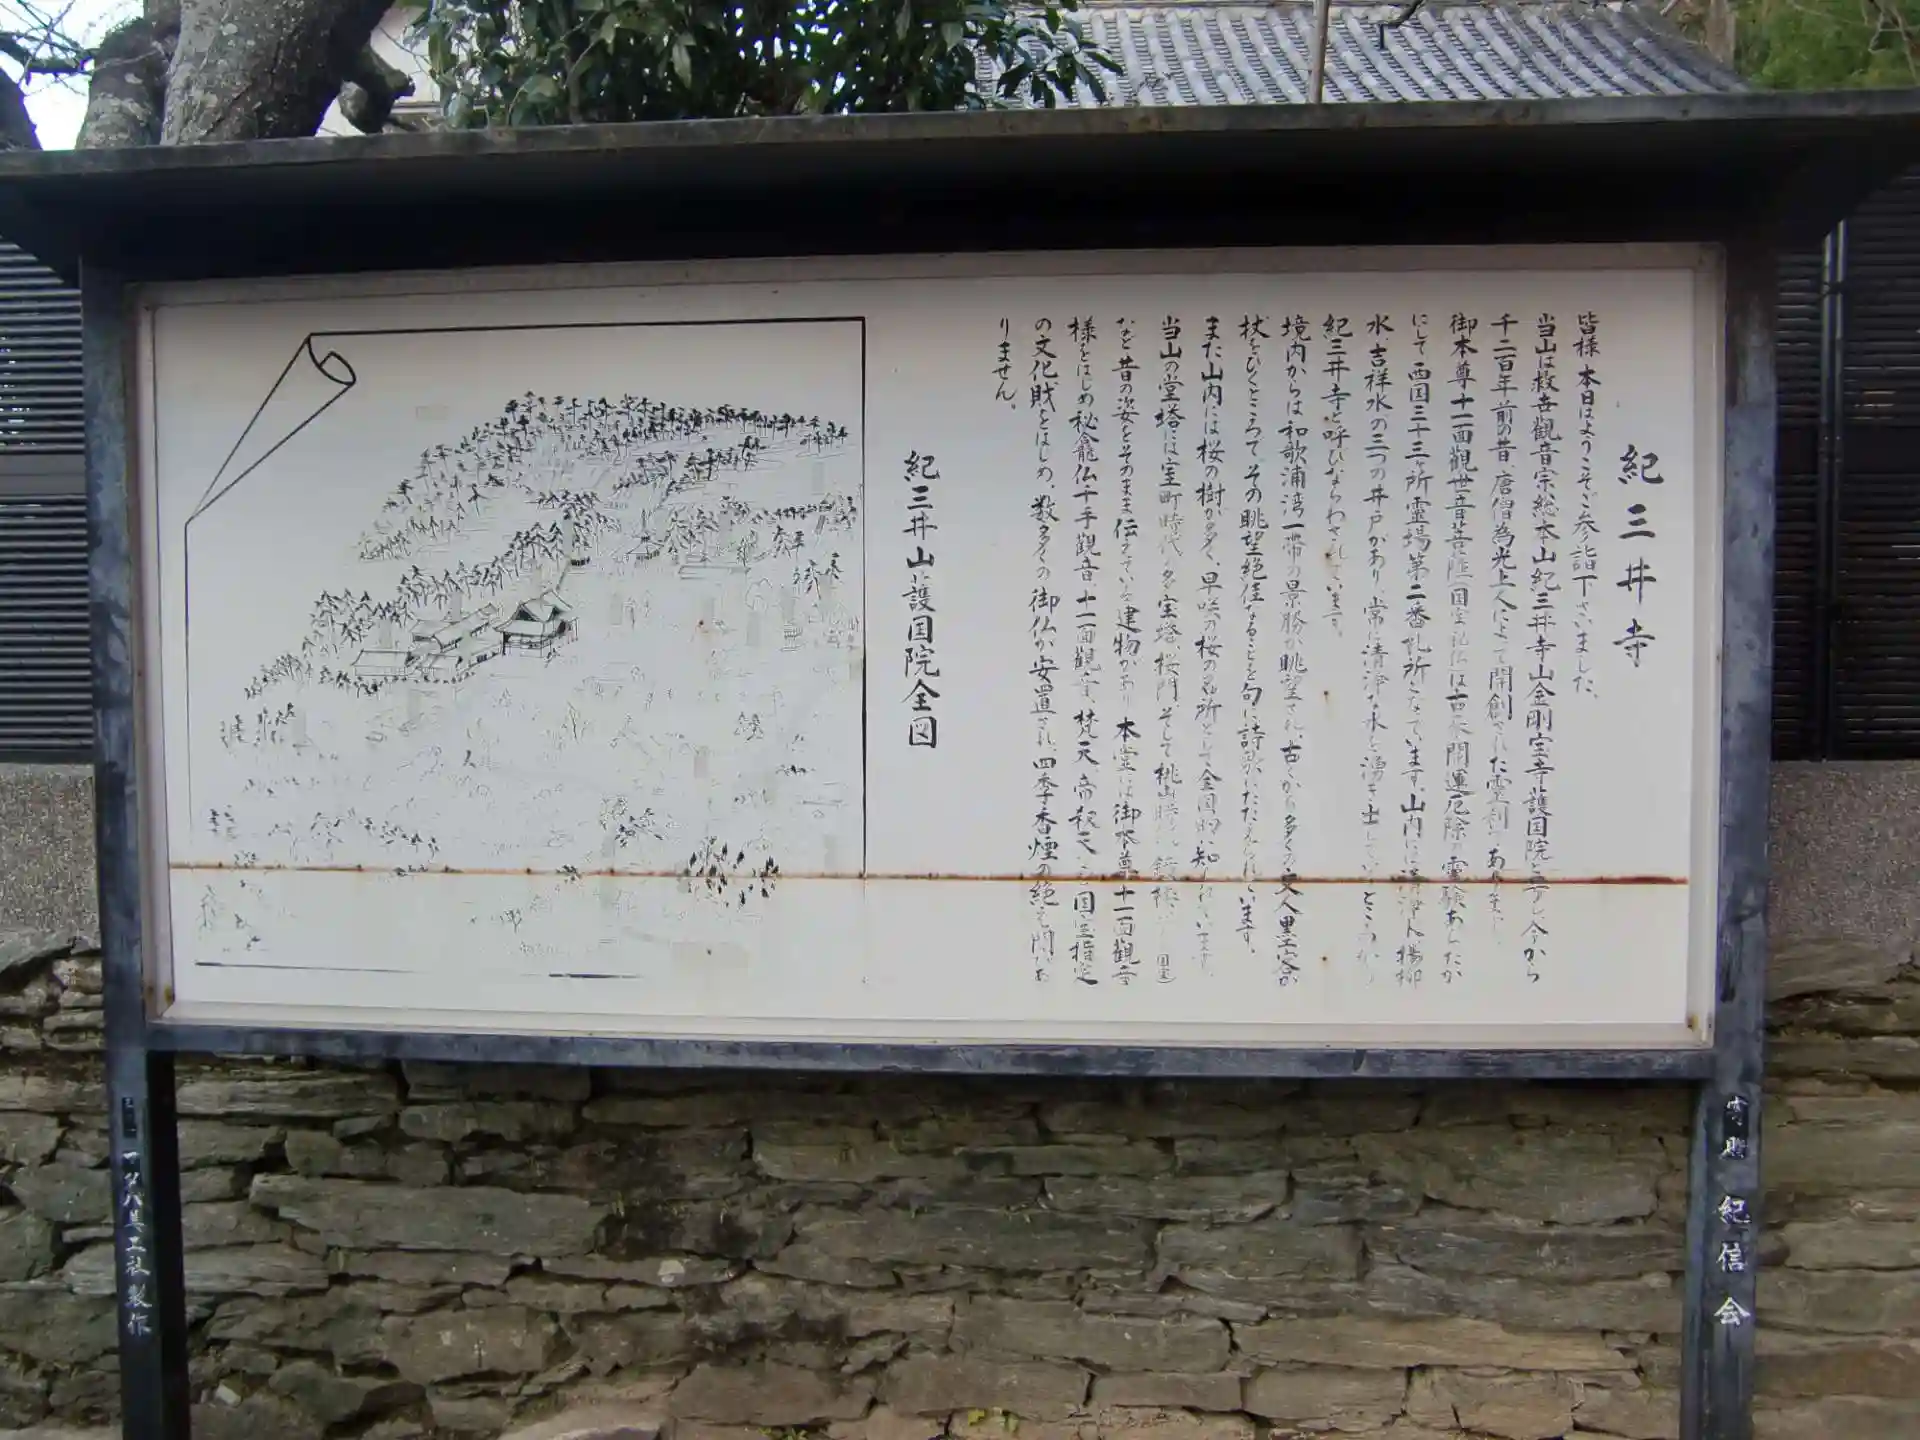 紀三井寺
皆様 本日はようこそご参詣下さいました。
当山は救世観音宗総本山紀三井寺山金剛宝寺護国院と号し、今から
千二百年前の昔、唐僧為光上人によって開創された霊刹であります。
御本尊十一面観世音菩薩(国宝)は古来開運厄除の霊験あらたか
にして西国三十三ヶ所霊場第二番札所となっています。山内には清浄水、楊柳
水、吉祥水の三つの井戸があり、常に清浄な水を湧き出しているところから
紀三井寺と呼びならわされています。
境内からは和歌浦湾一帯の景勝が眺望され、古くから多くの文人墨客が
杖をひくところで、その眺望絶佳なることを句に詩歌にたたえられています。
また山内には桜の樹が多く、早咲の桜の名所として全国的に知られています。
当山の堂塔には室町時代の多宝塔、桜門、そして桃山時代の鐘楼(国宝)
など昔の姿をそのまま伝えている建物があり 本堂には御本尊十一面観音
様をはじめ秘龕仏千手観音、十一面観音、梵天、帝釈天 国宝指定
の文化財をはじめ、数多くの御仏が安置され、四季香煙の絶え間があ
りません。
紀三井山護国院全図
寄贈 紀信会
工社製作